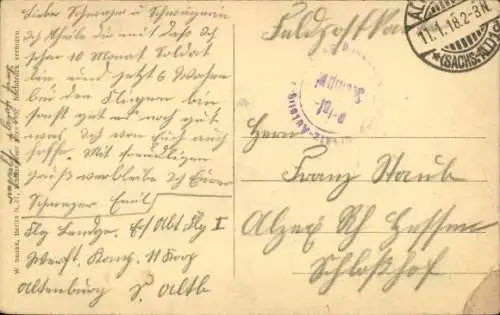 Lieber Schwager u Schwägerin
Ich Theile dir mit daß Ich
schon 10 Monat Soldat
bin und jetzt 6 Wochen
bei den Fliegern bin
sonst gut und noch gut
was Ich von Euch auch
hoffe. Mit freundlichen
Gruß verbleibe Ich Euer
Schwager Emil
Flg Landgr. Ers Abt Flg I
Werft. Komp. 11 Korp
Altenburg S. Altb
Feldpostkarte
11.1.18.2-3N.
*(SACHS.-ALT.)
Brief-
Herrn
Franz Staub
Alzey Rh Hessen
Schloßhof
W. Sanke, Berlin N. 37,